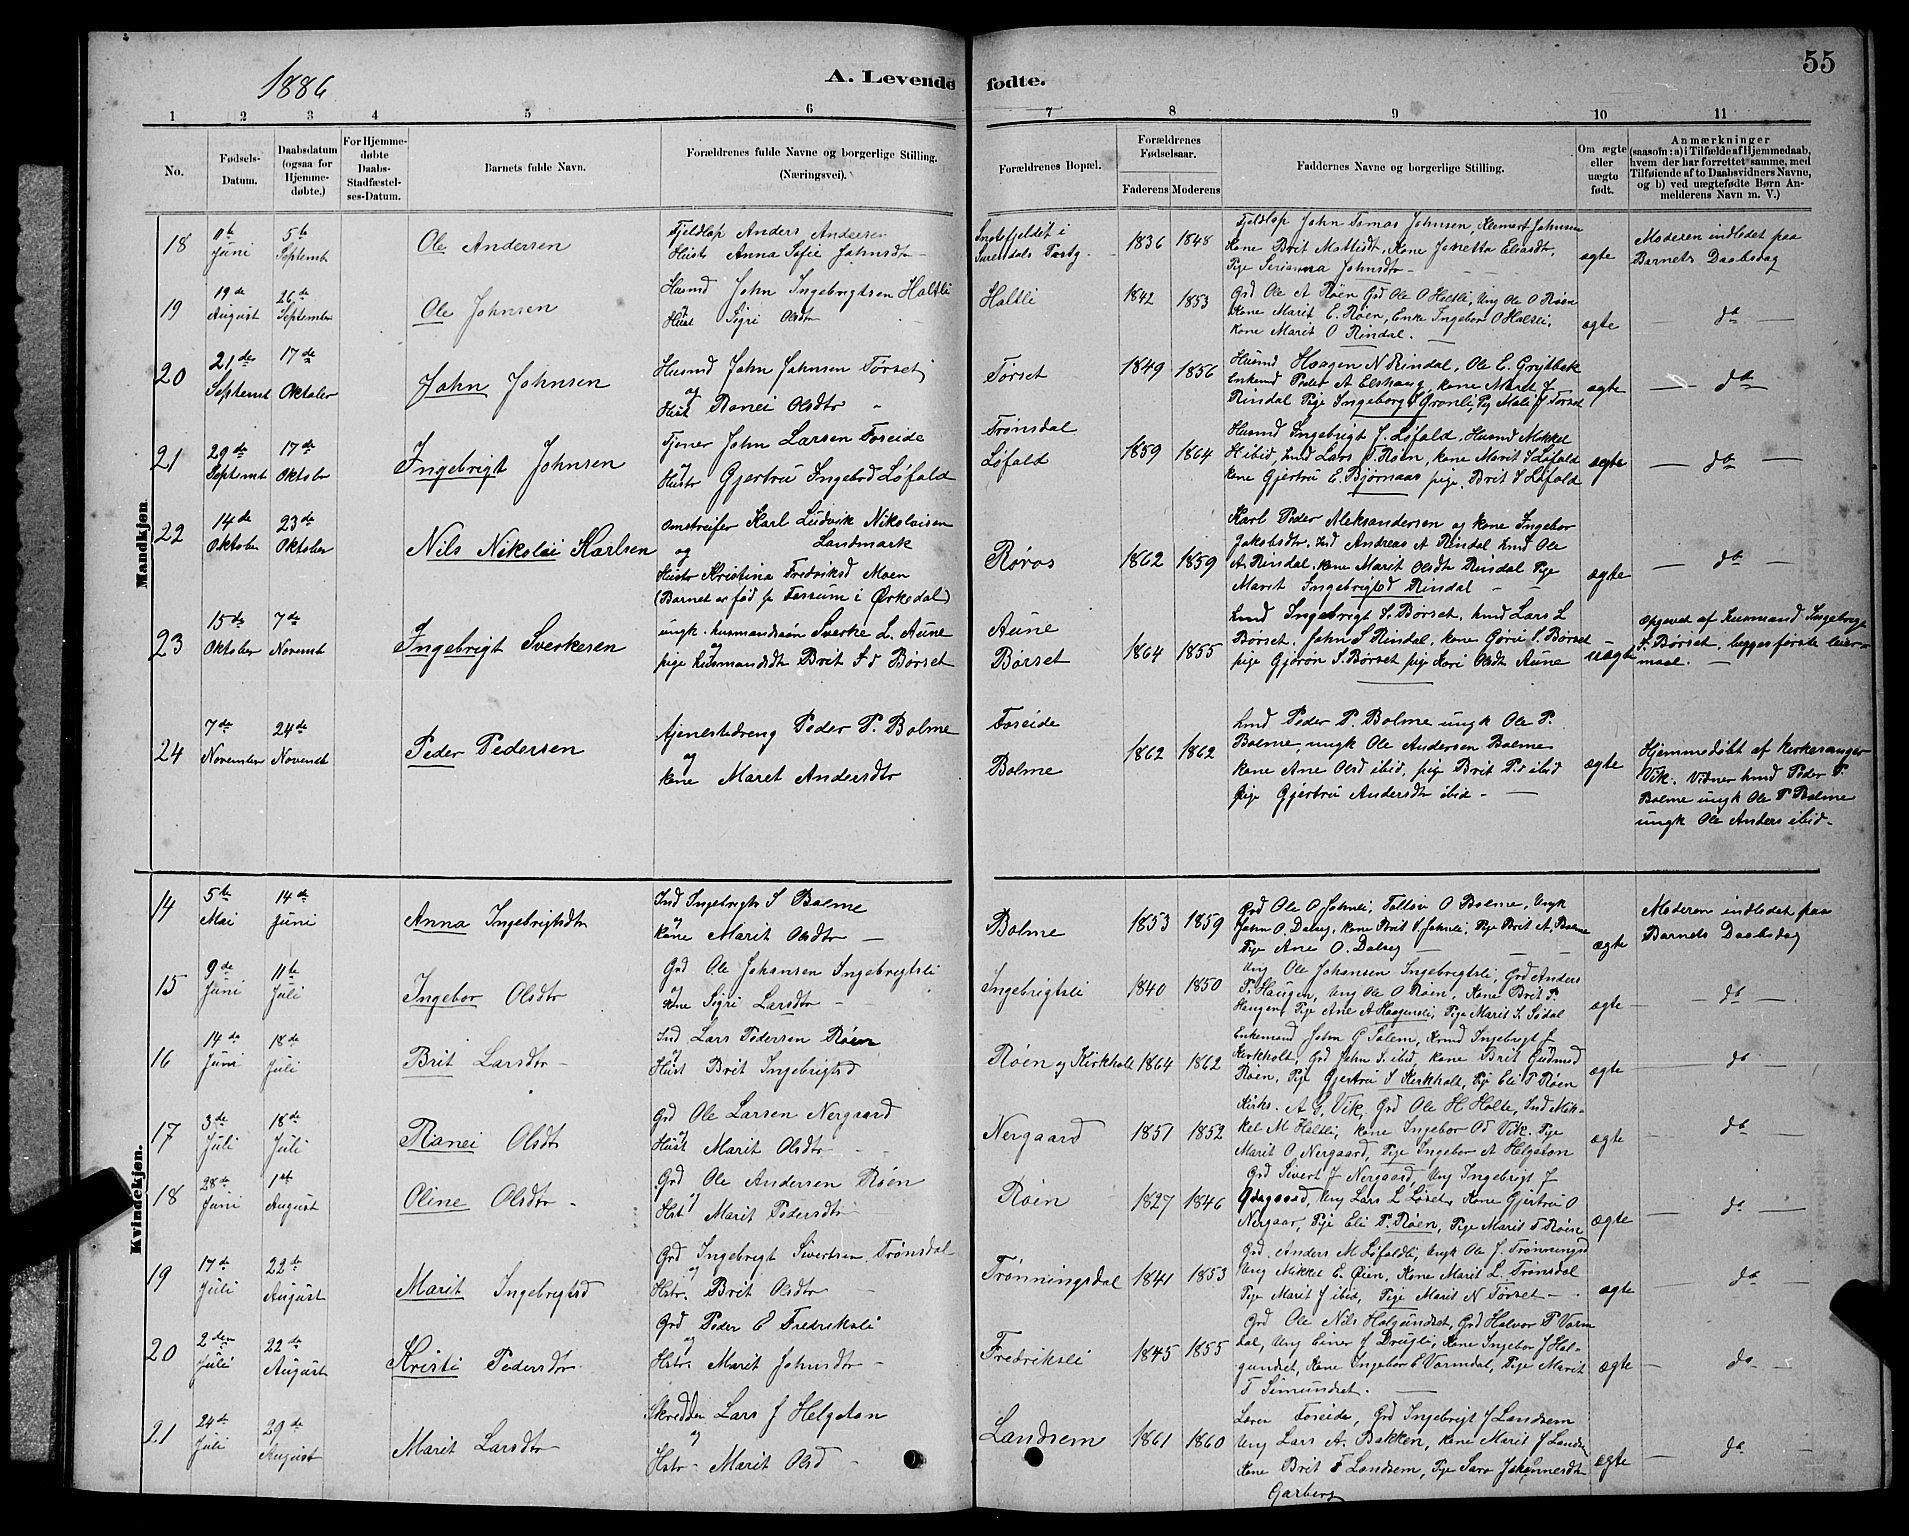 1886
A. Levende fødte.
55
1 2 3 4 5 6 7 8 9 10 11
No.
Fødsels-Datum.
Daabsdatum (ogsaa for Hjemme-døbte.)
For Hjemme-døbte Daabs-Stadfæstel-ses-Datum.
Barnets fulde Navn.
Forældrenes fulde Navne og borgerlige Stilling. (Næringsvei).
Forældrenes Bopæl.
Forældrenes Fødselsaar.
Faderens Moderens
Faddernes Navne og borgerlige Stilling.
Om ægte eller uægte født.
Anmærkninger
(saasom: a) i Tilfælde af Hjemmedaab,
hvem der har forrettet samme, med
Tilføiende af to Daabsvidners Navne,
og b) ved uægtefødte Børn An-
melderens Navn m. V.)
Mandkjøn
18
11te Juni
5te Septemt
Ole Andersen
Fjeldlap Anders Andersen
Hustr Anna Sofie Johnsdtr
Surendals Præstg.
1836 1848
Fjeldlap John Tomas Johnsen, Klemert Johnsen
Kone Brit Mattisdt, Kone Janetta Elisadtr,
Pige Serianna Johnsdtr
ægte
Moderen indledet paa
Barnets Daabsdag
19
19de August
26de September
Ole Johnsen
Husmd John Ingebrigtsen Haltli
og
Hust Sigri Olsdtr
Haltli
1842 1853
Grd Ole A Røen Grd Ole O Haltli, Ung Ole O Røen
Kone Marit E. Røen, Enke Ingebor O Halsli,
kone Marit O Rindal.
ægte
do
20
21de Septemt
17de Oktober
John Johnsen
Husmd John Johnsen Tørset
og
Hust Ranei Olsdtr
Tørset
1849 1856
Husmd Haagen N Rindal, Ole E. Grytbak
Enkemd Peder A Elshaug, kone Marit J
Rindal Pige Ingeborg S Grønli, Pig Mali J Tørset
ægte
do
21
29de Septemt
17de Oktober
Ingebrigt Johnsen
Tjener John Larsen Foseide
og
Hustr Gjertru Ingebrd Løfald
Trønsdal
Løfald
1859 1864
Husmd Ingebrigt J. Løfald, Husmd Mikkel
H ibid, Lnd Lars T. Røen, kone Marit I Løfald
kone Gjertru E. Bjørnaas pige. Brit I Løfald
ægte
do
22
14de Oktober
23de Oktober
Nils Nikolai Karlsen
Omstreifer Karl Ludvik Nikolaisen
Landmark
og
Hustr Kristina Fredriksd Moen
(Barnet er fød p Fossum i Ørkedal)
Røros
1862 1859
Karl Peder Aleksandersen og kone Ingebor
Jakobsdtr. Ind Andreas A Rindal hmd Ole
A. Rindal, kone Marit Olsdtr Rindal Pige
Marit Ingebrigtsd Rindal
ægte
do
23
15de Oktober
7de Novembt
Ingebrigt Sverkesen
ungk. husmandssøn Sverke L. Aune
og
pige husmandsdtr Brit I d Børset
Aune
Børset
1864 1855
hmd Ingebrigt S. Børset, hmd Lars L
Børset. John S Rindal, kone Gøru S. Børset
pige Gjørøn S. Børset pige Kari Olsdtr Aune
uægte
Opgivet af husmand Ingebrigt
F. Børset, begges første leier-
maal.
24
7de November
24de Novembt
Peder Pedersen
tjenestedreng Peder P. Bolme
og
kone Maret Andersdtr
Foseide
Bolme
1862 1862
hmd Peder P. Bolme ungk Ole P.
Bolme, ungk Ole Andersen Bolme
kone Ane Olsd ibid, pige Brit P.d ibid
Pige Gjertru Andersdtr ibid
ægte
Hjemmedøbt af kirkesanger
Vik. Vidner hmd Peder P.
Bolme ungk Ole P Bolme
ungk Ole Anders ibid
Kvindekjøn.
14
5te Mai
14de Juni
Anna Ingebrigtsdtr
Ind Ingebrigt S Bolme
og
kone Marit Olsdtr
Bolme
1853 1859
Grd Ole O Jahnli, Tallov O Bolme, Ungk
John O. Dalseg, kone Brit S. Jahnli, Pige Brit A, Bolme
Pige Ane O. Dalseg
ægte
Moderen indledet paa
Barnets Daabsdag
15
9de Juni
11te Juli
Ingebor Olsdtr
Grd Ole Johansen Ingebrigtsli
og
kone Sigri Larsdtr
Ingebrigtsli
1840 1850
Ung Ole Johansen Ingebrigtsli, Grd Anders
T. Haugen, Ung Ole O Røen, Kone Brit P.
Haugen, Pige Ane A Haagensli, Pige Marit S. Sødal
ægte
do
16
14de Juni
18de Juli
Brit Larsdtr
Ind Lars Pedersen Røen
og
Hust Brit Ingebrigtsd
Røen og Kirkholt
1864 1862
Enkemand John G Solem, Kmd Ingebrigt J
Kirkholt, Grd John S. ibid kone Brit Gudmd
Røen, Pige Gjertru S Kirkholt, Pige Eli P Røen
ægte
do
17
3de Juli
18de Juli
Ranei Olsdtr
Grd Ole Larsen Nergaard
og
Hust Marit Olsdtr
Nergaard
1851 1852
Kirks. A G. Vik, Grd Ole H Holte, Ind Mik-
kel M Haltli, kone Ingebor Od Vik. Pige
Marit O Nergaard, Pige Ingebor A Helgeton
ægte
do
18
28de Juni
1ste August
Oline Olsdtr
Grd Ole Andersen Røen
og
Hst Marit Pedersdtr
Røen
1827 1846
Grd Sivert J Nergaard, Ung Ingebrigt J
Ødegaard, Ung Lars L Løset, Kone Gjertru O
Nergaar, Pige Eli P. Røen, Pige Marit T Røen
ægte
do
19
17de Juli
22de August
Marit Ingebrigtsd
Grd Ingebrigt Sivertsen Trønsdal
og
Hstr. Brit Olsdtr
Trønningsdal
1841 1853
Grd. Anders M Løfaldli, Ungk Ole J. Trønningsd
Ung Mikkel E. Øien, Kone Marit L. Trønsdal
Pige Marit J ibid, Pige Marit N Tørset
ægte
do
20
2den Juli
22de August
Kristi Pedersdtr
Grd Peder E Fredriksli
og
Hstr. Marit Johnsdtr
Fredriksli
1845 1855
Grd Ole Nils Halgundset, Grd Halvor P Varm
dal, Ung Einer J Drugli, Kone Ingebor J Hal-
gundset, Kone Ingebor E Varmdal, Pige Marit
T Simundset.
ægte
do
21
24de Juli
29de August
Marit Larsdtr
Skredder Lars J Helgeton
og
Hstr Marit Olsd
Landsem
1861 1860
Lærer Foseide, Grd Ingebrigt J Landsem
Ung Lars A. Bakken, kone Marit J Landse
Kone Brit T Landsem, Pige Sara Johannesdtr
Garberg
ægte
do